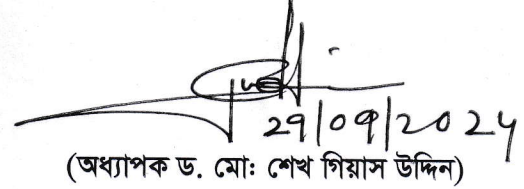 29/09/2024
(অধ্যাপক ড. মোঃ শেখ গিয়াস উদ্দিন)